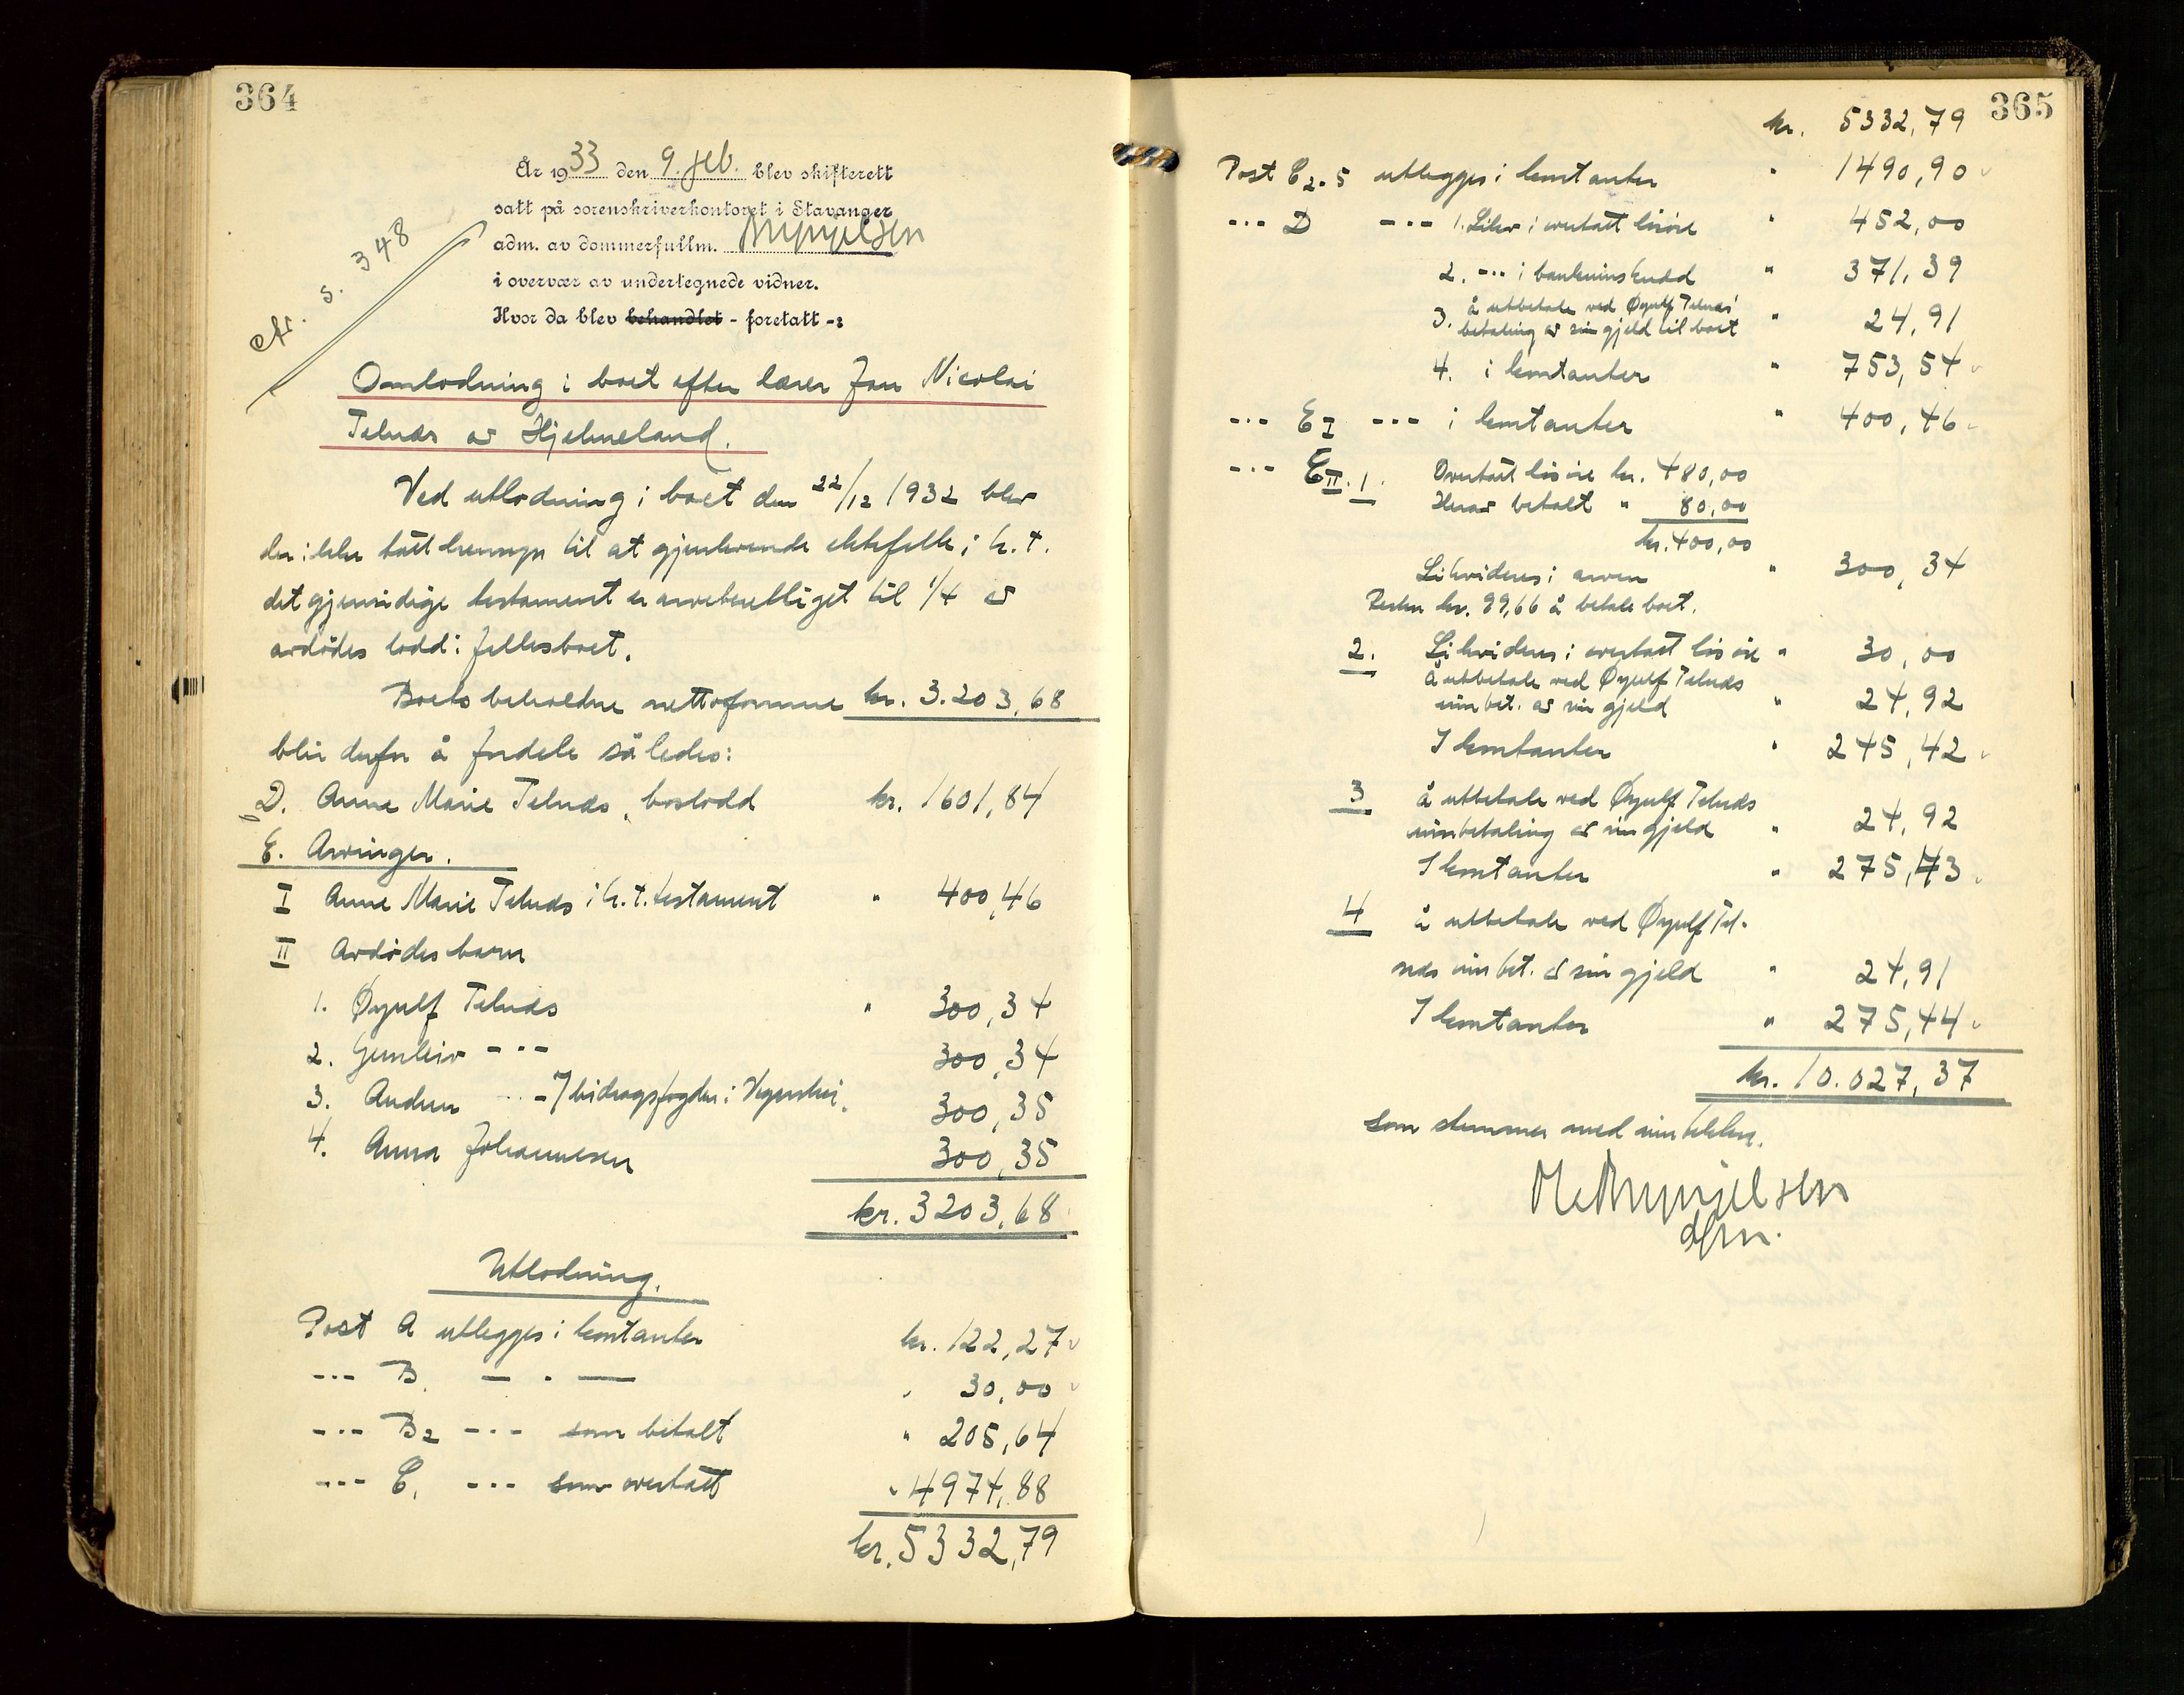 364
År 1933 den 9. feb. blev skifterett
satt på sorenskriverkontoret i Stavanger
adm. av dommerfullm. Brynjelsen
i overvær av undertegnede vidner.
Hvor da blev behandlet - foretatt -:
Cfr. s. 348
Omlodning i boet efter lærer Jan Nicolai
Telnæs av Hjelmeland.
Ved utlodning i boet den 22/12 1932 blev
der ikke tatt hensyn til at gjenlevende ektefelle i h. t.
det gjensidige testament er arveberettiget til 1/4 av
avdødes lodd i fellesboet.
Boets beholdne nettoformue kr. 3.203,68
blir derfor å fordele således:
D. Anne Marie Telnæs, boslodd kr. 1601,84
E. Arvinger.
I Anne Marie Telnæs i h. t. testament " 400,46
II Avdødes barn
1. Øyulf Telnæs " 300,34
2. Gunleiv -"- 300,34
3. Audun -"- / bidragsfogden i Vegusdei. 300,35
4. Anna Johannesen 300,35
kr. 3203,68
Utlodning.
Post A utlegges i kontanter kr. 122,27
--- B. — " — " 30,00
--- B2 --- som betalt " 205,64
--- C. --- som overtatt " 4974,88
kr. 5332,79
365
kr. 5332,79
Post C2-5 utlegges i kontanter " 1490,90
--- D --- 1. Likv. i overtatt løsøre " 452,00
2. --- i bankinnskudd " 371,39
3. å utbetale ved Øyulf Telnæs'
betaling av sin gjeld til boet " 24,91
4. i kontanter " 753,54
--- E I --- i kontanter " 400,46
--- E II. 1. Overtatt løsøre kr. 480,00
Herav betalt " 80,00
kr. 400,00
Likvideres i arven " 300,34
Resten kr. 99,66 å betale boet.
2. Likvideres i overtatt løsøre " 30,00
å utbetale ved Øyulf Telnæs
innbet. av sin gjeld " 24,92
I kontanter " 245,42
3 å utbetale ved Øyulf Telnæs
innbetaling av sin gjeld " 24,92
I kontanter " 275,43
4 å utbetale ved Øyulf Tel-
næs innbet. av sin gjeld " 24,91
I kontanter " 275,44
kr. 10.027,37
som stemmer med inntekten.
Brynjelsen
dfm.